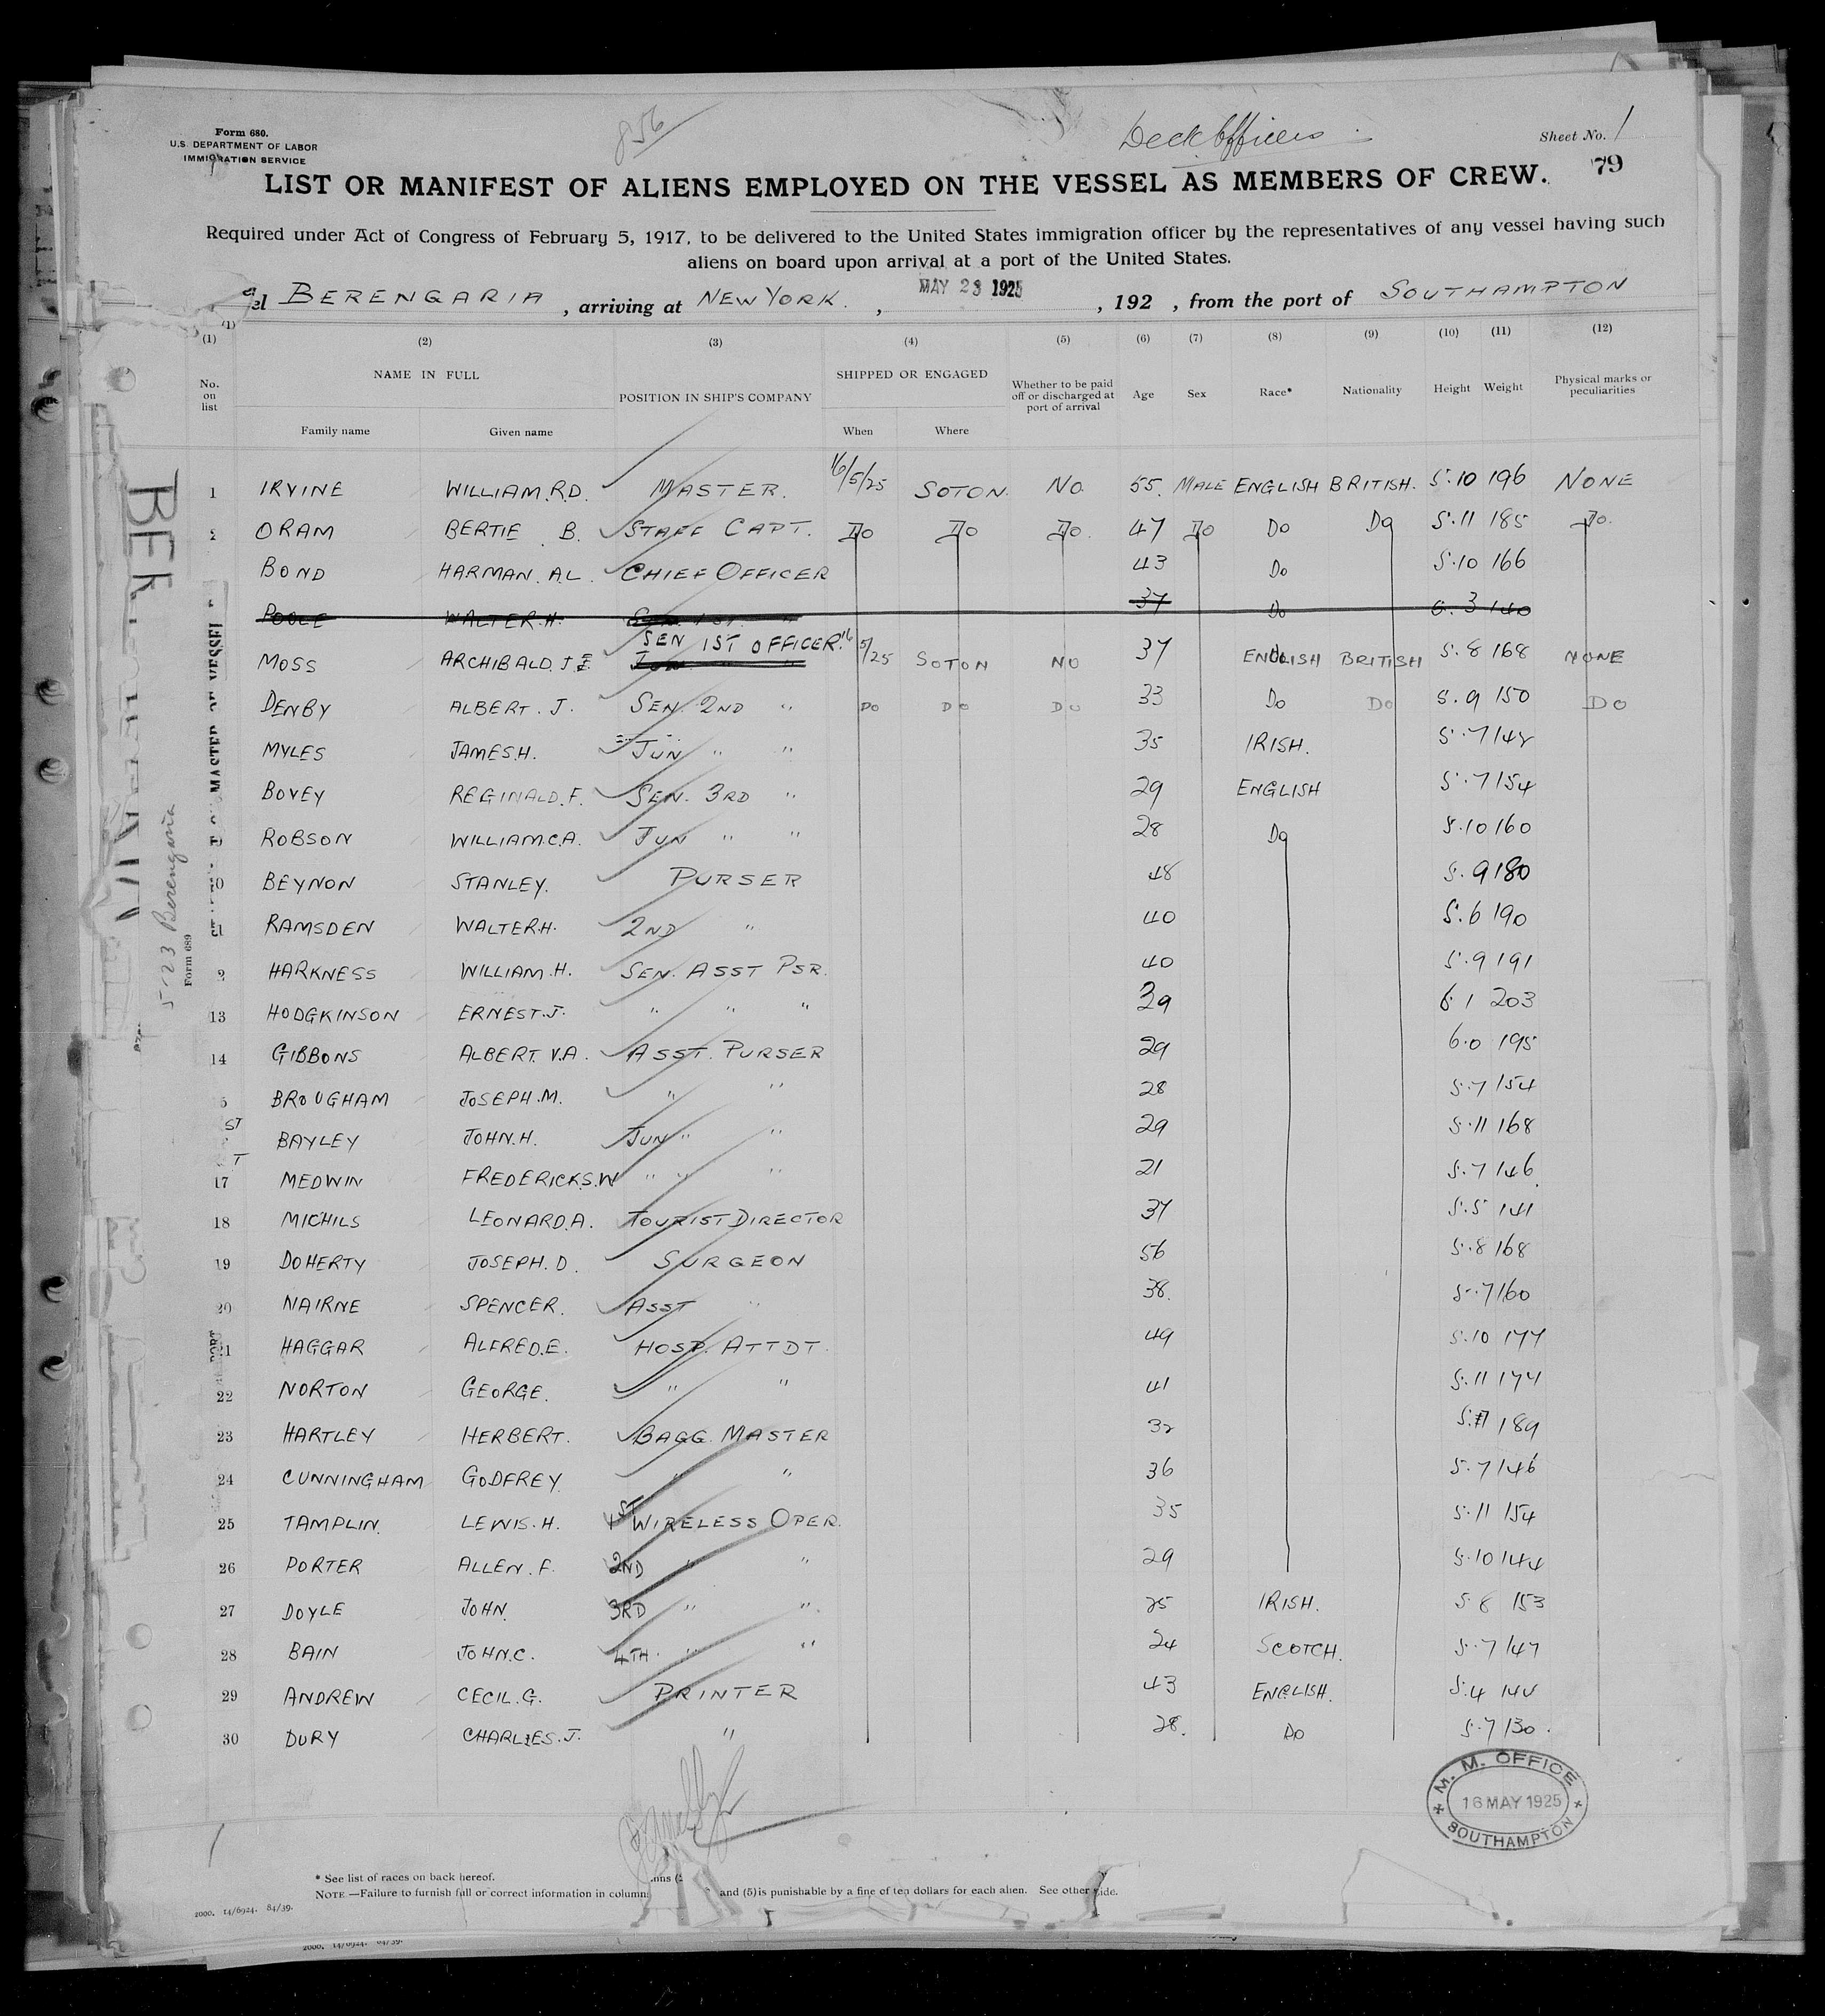 Form 680.
U.S. DEPARTMENT OF LABOR
IMMIGRATION SERVICE
856
Deck Officers
Sheet No. 1
79
LIST OR MANIFEST OF ALIENS EMPLOYED ON THE VESSEL AS MEMBERS OF CREW.
Required under Act of Congress of February 5, 1917, to be delivered to the United States immigration officer by the representatives of any vessel having such
aliens on board upon arrival at a port of the United States.
el BERENGARIA, arriving at NEW YORK., MAY 23 1925, 192 , from the port of SOUTHAMPTON
(1) (2) (3) (4) (5) (6) (7) (8) (9) (10) (11) (12)
No. on list NAME IN FULL POSITION IN SHIP'S COMPANY SHIPPED OR ENGAGED Whether to be paid off or discharged at port of arrival Age Sex Race* Nationality Height Weight Physical marks or peculiarities
Family name Given name When Where
1 IRVINE WILLIAM.R.D. MASTER. 16/5/25 SOTON. NO. 55. MALE ENGLISH BRITISH. 5.10 196 NONE
2 ORAM BERTIE B. STAFF CAPT. DO DO DO. 47 DO DO DO 5.11 185 DO.
BOND HARMAN.A.L. CHIEF OFFICER 43 DO 5.10 166
POOLE WALTER.H. 37 DO 6.3 140
MOSS ARCHIBALD.J.E. SEN 1ST OFFICER. 16/5/25 SOTON NO 37 ENGLISH BRITISH 5.8 168 NONE
DENBY ALBERT.J. SEN. 2ND " DO DO DO 33 DO DO 5.9 150 DO
MYLES JAMES.H. JUN " " 35 IRISH. 5.7
BOVEY REGINALD.F. SEN. 3RD " 29 ENGLISH 5.7 154
ROBSON WILLIAM.C.A. JUN " " 28 DO 5.10 160
0 BEYNON STANLEY. PURSER 48 5.9 180
1 RAMSDEN WALTER.H. 2ND " 40 5.6 190
2 HARKNESS WILLIAM.H. SEN. ASST PSR. 40 5.9 191
13 HODGKINSON ERNEST.J. " " " 39 6.1 203
14 GIBBONS ALBERT.V.A. ASST. PURSER 29 6.0 195
5 BROUGHAM JOSEPH.M. " " 28 5.7 154
BAYLEY JOHN.H. JUN " " 29 5.11 168
17 MEDWIN FREDERICK.S.W " " " 21 5.7 146
18 MICHILS LEONARD.A. TOURIST DIRECTOR 37 5.5 141
19 DOHERTY JOSEPH.D. SURGEON 56 5.8 168
20 NAIRNE SPENCER. ASST " 38. 5.7 160
21 HAGGAR ALFRED.E. HOSP. ATTDT. 49 5.10 177
22 NORTON GEORGE. " " 41 5.11 174
23 HARTLEY HERBERT. BAGG. MASTER 32 189
24 CUNNINGHAM GODFREY. " " 36 5.7 146
25 TAMPLIN. LEWIS.H. 1ST WIRELESS OPER. 35 5.11 154
26 PORTER ALLEN.F. 2ND " " 29 5.10 144
27 DOYLE JOHN. 3RD " " 25 IRISH. 5.8 153
28 BAIN JOHN.C. 4TH. " " 24 SCOTCH. 5.7 147
29 ANDREW CECIL.G. PRINTER 43 ENGLISH. 5.4
30 DURY CHARLES.J. " 28. DO 5.7 130.
M. M. OFFICE
16 MAY 1925
SOUTHAMPTON
* See list of races on back hereof.
NOTE.—Failure to furnish full or correct information in column and (5) is punishable by a fine of ten dollars for each alien. See other side.
2000. 14/6924. 84/39.
2000. 14/6924. 84/39.
5-23 Berengaria
Form 689
MASTER OF VESSEL
BER